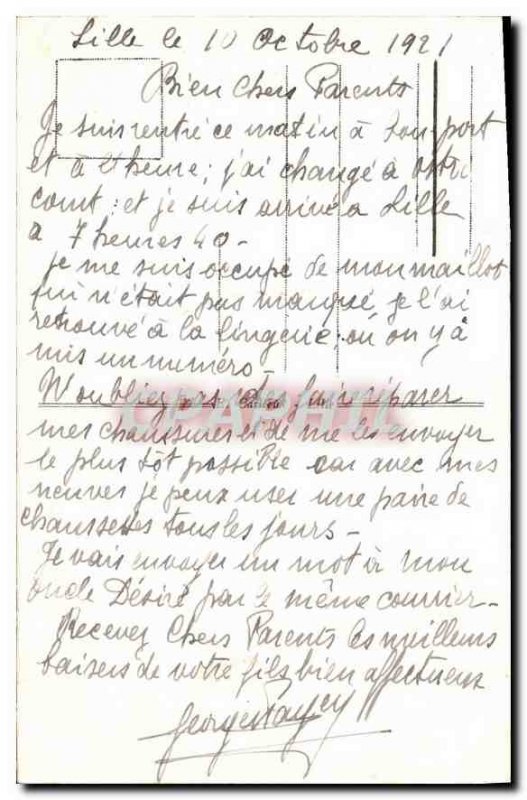 Lille le 10 Octobre 1921
Bien Chers Parents
Je suis rentré ce matin à bon port
et à l'heure; j'ai changé à
comt: et je suis arrivé a Lille
a 7 heures 40-
je me suis occupé de mon maillot
qui n'était pas manqué, je l'ai
retrouvé à la lingerie; où on y a
mis un numéro-
N'oubliez pas de faire réparer
mes chaussures et de me les envoyer
le plus tôt possible car avec mes
neuves je peux user une paire de
chaussettes tous les jours-
Je vais envoyer un mot à mon
oncle Désiré par le même courrier-
Recevez Chers Parents les meilleurs
baisers de votre fils bien affectueux
Georges
CPAPHIL